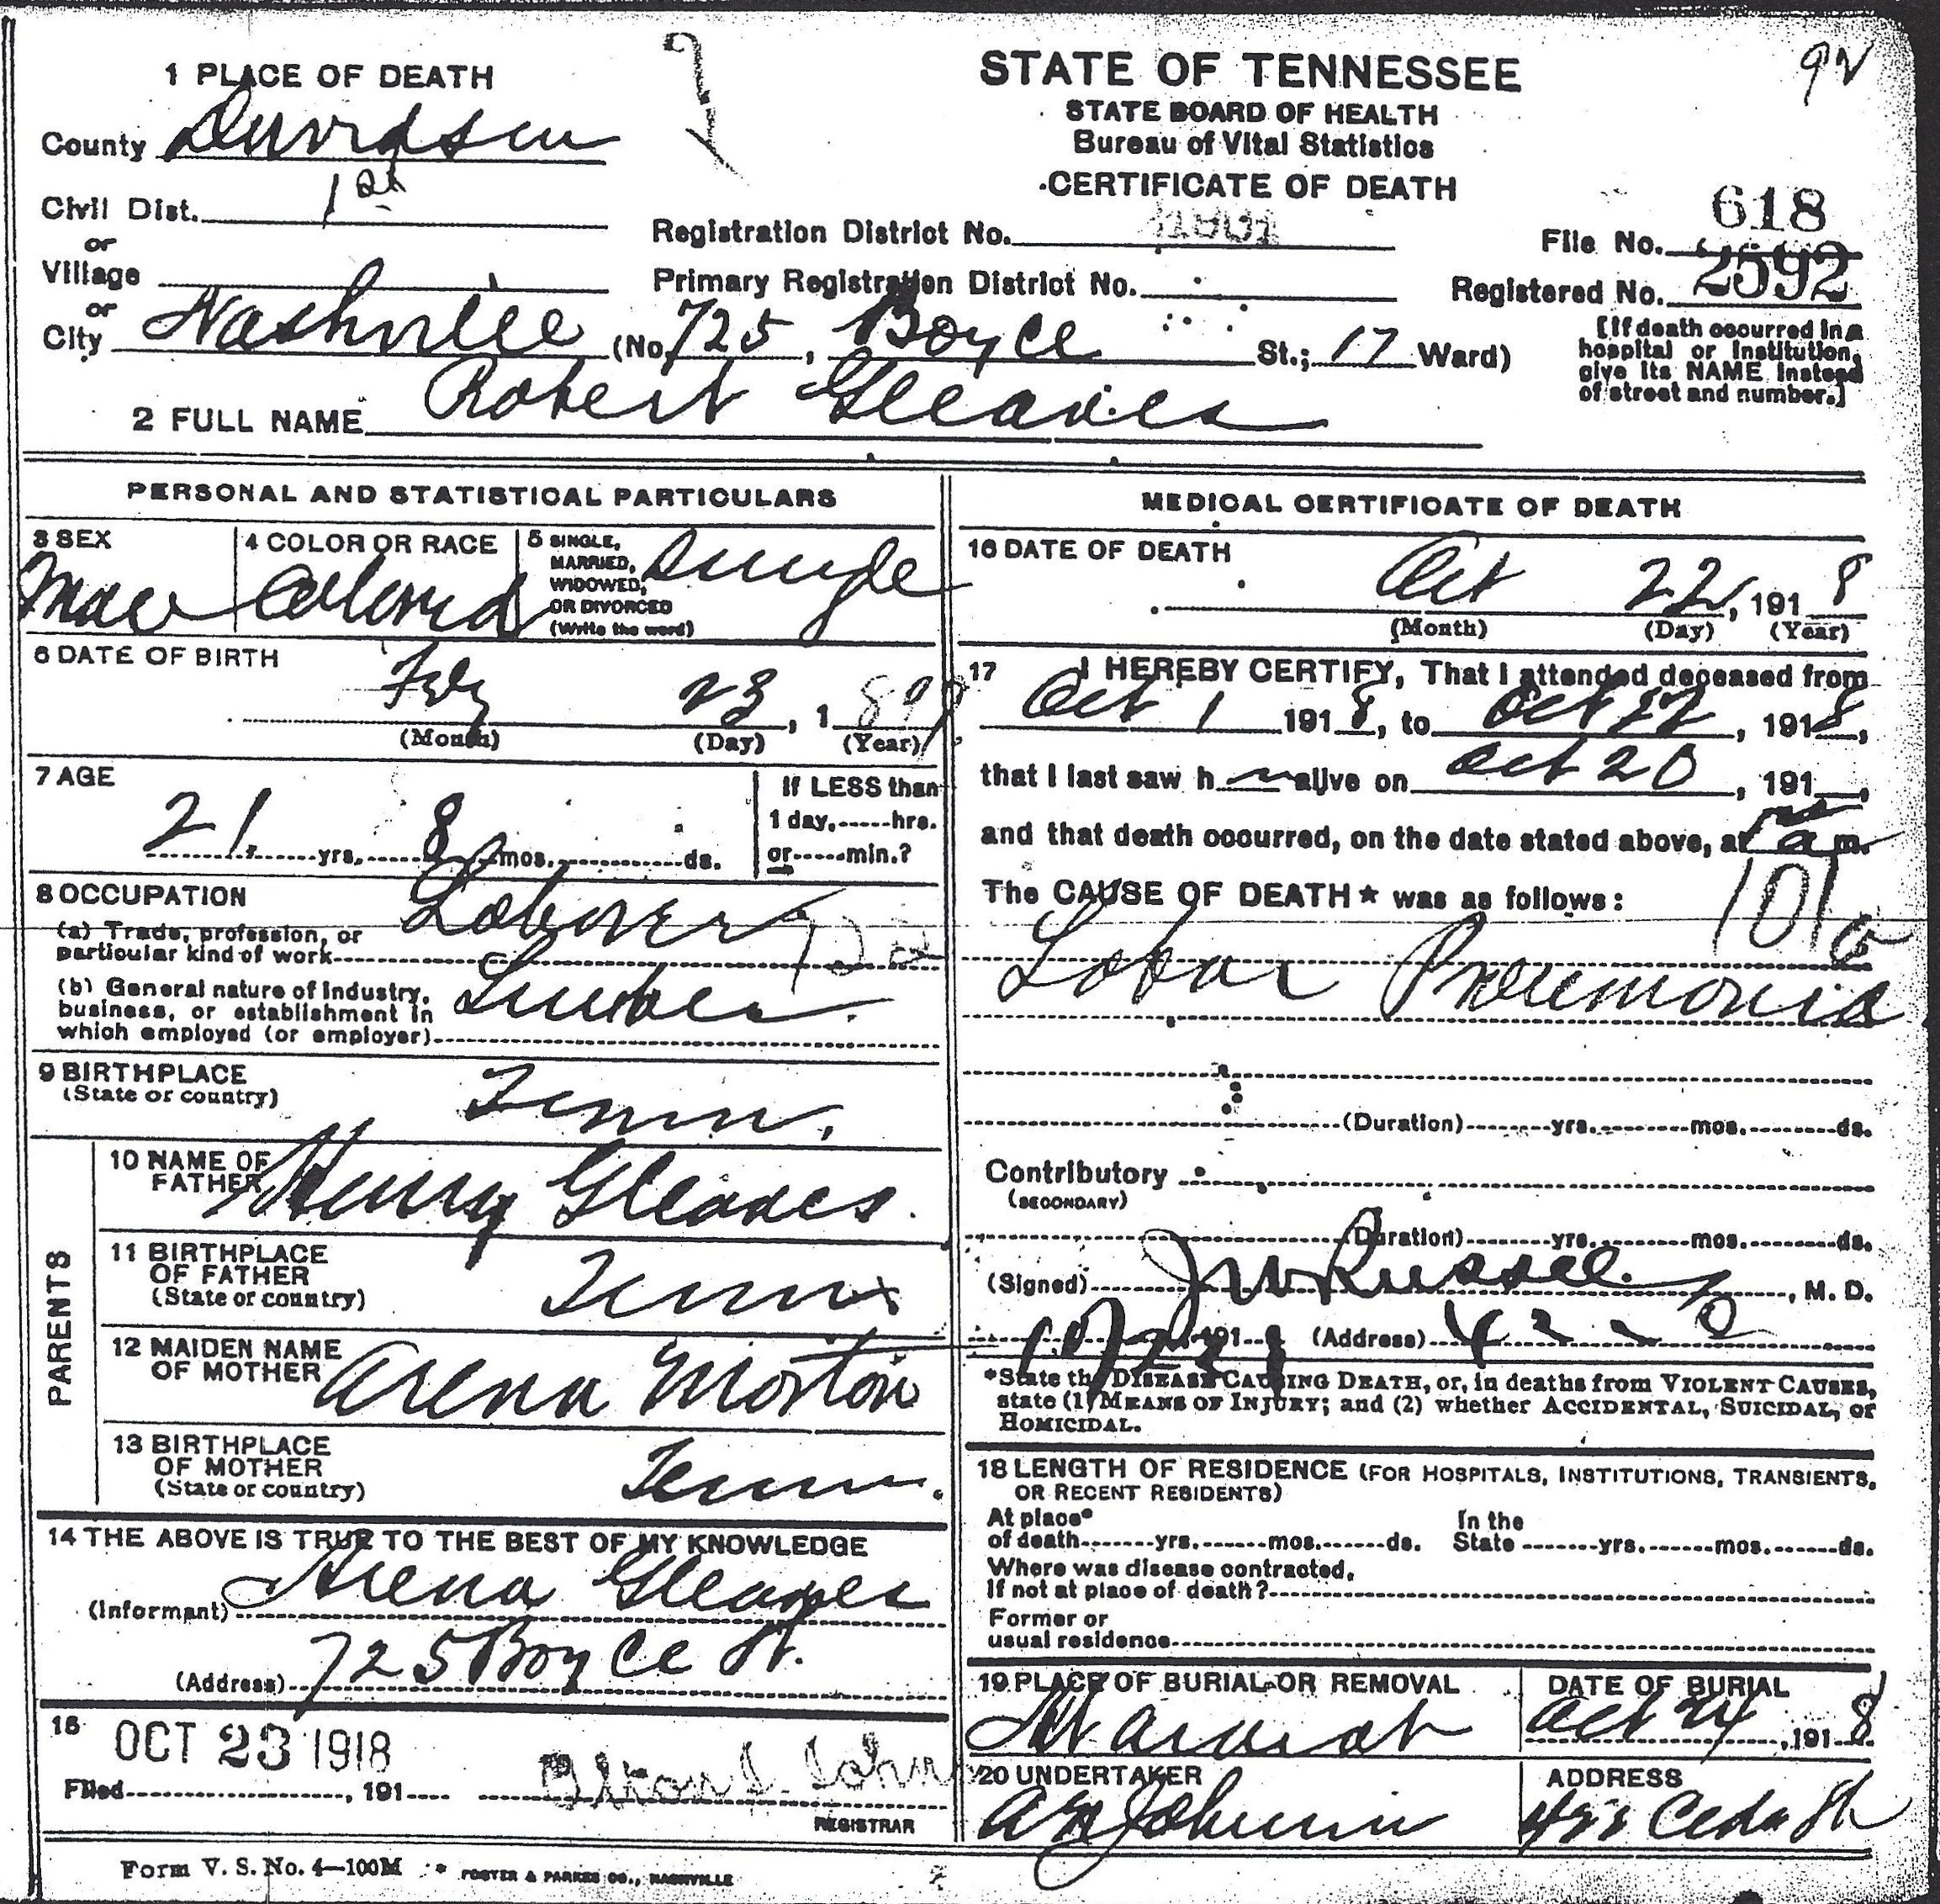 92
STATE OF TENNESSEE
STATE BOARD OF HEALTH
Bureau of Vital Statistics
CERTIFICATE OF DEATH
1 PLACE OF DEATH
County Davidson
Civil Dist. 1st
or
Village
or
City Nashville (No. 725, Boyce St.; 17 Ward)
Registration District No.
Primary Registration District No.
File No. 618
Registered No. 2592
[If death occurred in a
hospital or institution,
give its NAME instead
of street and number.]
2 FULL NAME Robert Gleaves
PERSONAL AND STATISTICAL PARTICULARS
3 SEX
Male
4 COLOR OR RACE
Colored
5 SINGLE,
MARRIED,
WIDOWED,
OR DIVORCED
(Write the word)
Single
6 DATE OF BIRTH
Feby 23, 1897
(Month) (Day) (Year)
7 AGE
21 yrs. 8 mos. ds.
If LESS than
1 day, hrs.
or min.?
8 OCCUPATION
(a) Trade, profession, or
particular kind of work Laborer
(b) General nature of industry,
business, or establishment in
which employed (or employer) Lumber
9 BIRTHPLACE
(State or country)
Tenn.
PARENTS
10 NAME OF
FATHER Henry Gleaves.
11 BIRTHPLACE
OF FATHER
(State or country)
Tenn
12 MAIDEN NAME
OF MOTHER Arena Morton
13 BIRTHPLACE
OF MOTHER
(State or country)
Tenn.
14 THE ABOVE IS TRUE TO THE BEST OF MY KNOWLEDGE
(Informant) Arena Gleaves
(Address) 725 Boyce St.
15
OCT 23 1918
Filed , 191
REGISTRAR
MEDICAL CERTIFICATE OF DEATH
16 DATE OF DEATH
Oct 22, 1918
(Month) (Day) (Year)
17 I HEREBY CERTIFY, That I attended deceased from
Oct 1 1918, to Oct 22, 1918,
that I last saw h m alive on Oct 20, 191 ,
and that death occurred, on the date stated above, at a m.
The CAUSE OF DEATH* was as follows:
101a
Lobar Pneumonia
(Duration) yrs. mos. ds.
Contributory
(SECONDARY)
(Duration) yrs. mos. ds.
(Signed) J W Russell, M. D.
191 (Address)
*State the DISEASE CAUSING DEATH, or, in deaths from VIOLENT CAUSES,
state (1) MEANS OF INJURY; and (2) whether ACCIDENTAL, SUICIDAL, or
HOMICIDAL.
18 LENGTH OF RESIDENCE (FOR HOSPITALS, INSTITUTIONS, TRANSIENTS,
OR RECENT RESIDENTS)
At place
of death yrs. mos. ds.
In the
State yrs. mos. ds.
Where was disease contracted,
If not at place of death?
Former or
usual residence
19 PLACE OF BURIAL OR REMOVAL
Mt Ararat
DATE OF BURIAL
Oct 24, 1918
20 UNDERTAKER
A N Johnson
ADDRESS
Cedar St
Form V. S. No. 4—100M
FOSTER & PARKES CO., NASHVILLE